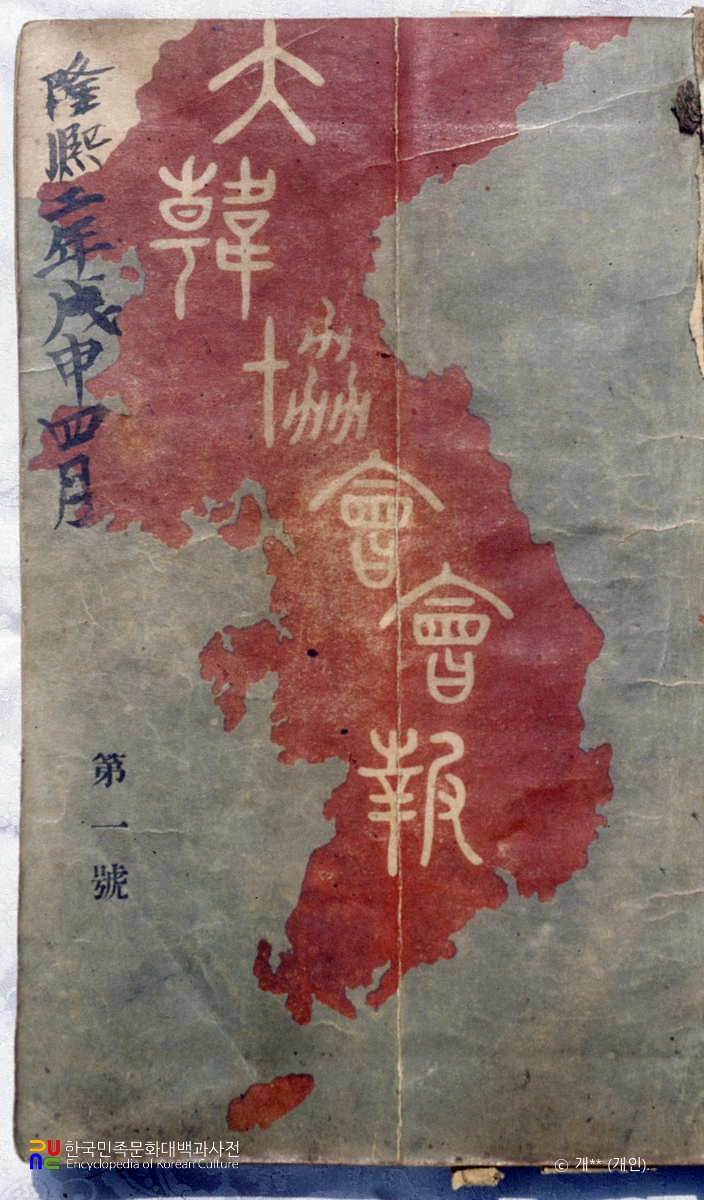 大韓協會會報
隆熙二年戊申四月
第一號
한국민족문화대백과사전
Encyclopedia of Korean Culture
© 개** (개인)